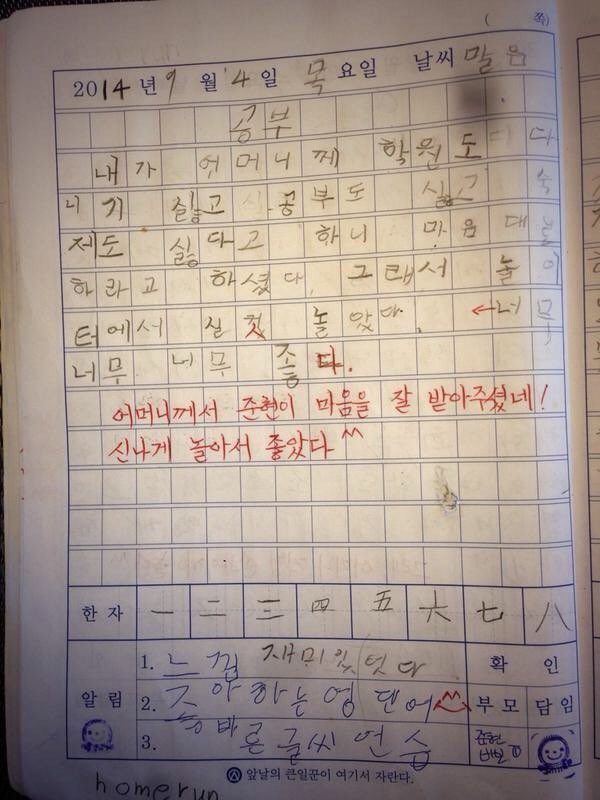 ( 쪽)
2014년 9월 4일 목요일 날씨 맑음
공부
내가 어머니께 학원도 다
니기 싫고 공부도 싫고 숙
제도 싫다고 하니 마음대로
하라고 하셨다. 그래서 놀이
터에서 실컷 놀았다. ←너무
너무 너무 좋다.
어머니께서 준현이 마음을 잘 받아주셨네!
신나게 놀아서 좋았다^^
한자 一 二 三 四 五 六 七 八
알림
1. 느낌 재미있엇다
2. 좋아하는 영 단어
3. 바른 글씨 연습
확인
부모 담임
준현
앞날의 큰일꾼이 여기서 자란다.
homerun